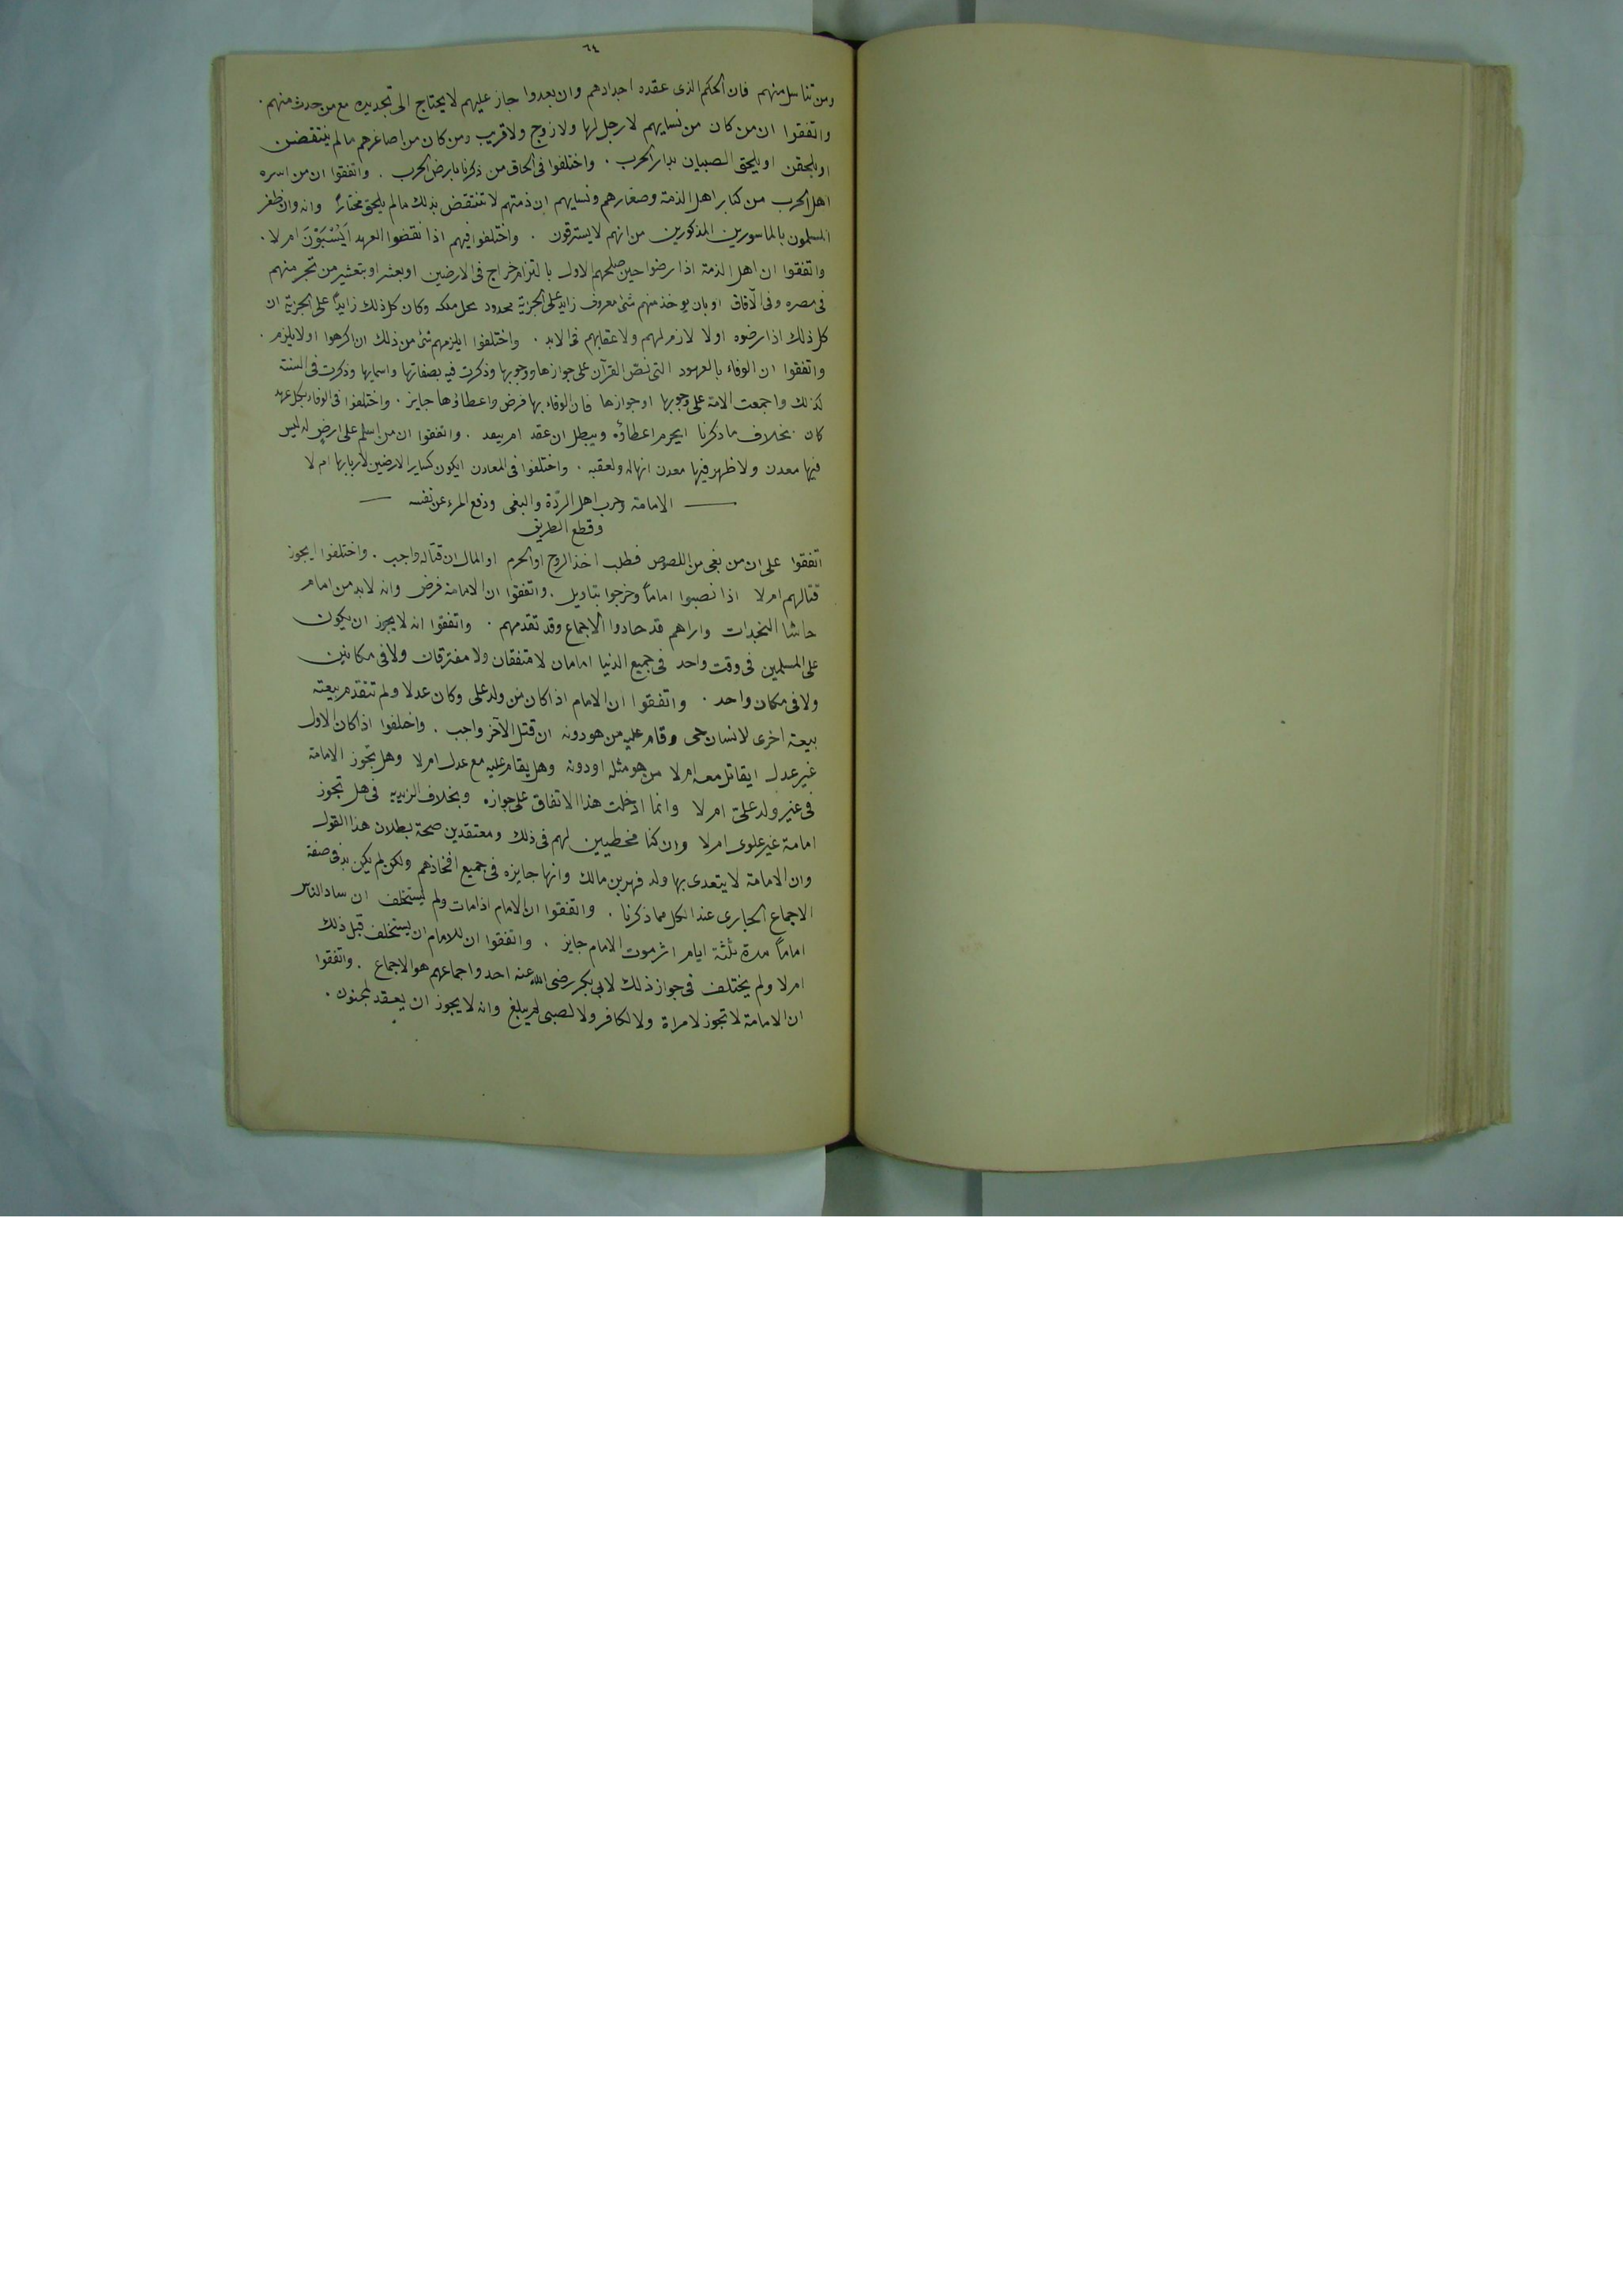 ٦٤
ومن تناسل منهم فان الحكم الذى عقده اجدادهم وان بعدوا جاز عليهم لا يحتاج الى تجديده مع من حدث منهم .
واتفقوا ان من كان من نسايهم لا رجل لها ولا زوج ولا قريب ومن كان من اصاغرهم مالم ينتقضن
او يلحقن او يلحق الصبيان بدار الحرب . واختلفوا فى الحاق من ذكرنا بارض الحرب . واتفقوا ان من اسره
اهل الحرب من كبار اهل الذمة وصغارهم ونسايهم ان ذمتهم لا تنتقض بذلك مالم يلحق مختاراً وانه وان ظفر
المسلمون بالماسورين المذكورين من انهم لا يسترقون . واختلفوا فيهم اذا نقضوا العهد اَيُسْبَوْنَ ام لا .
واتفقوا ان اهل الذمة اذا رضوا حين صلحهم الاول بالتزام خراج فى الارضين او بعشر او بتعشير من تجر منهم
فى مصره وفى الآفاق او بان يوخذ منهم شئ معروف زايد على الجزية محدود يحل ملكه وكان كل ذلك زايداً على الجزية ان
كل ذلك اذا رضوه اولا لازم لهم ولاعقابهم فى الابد . واختلفوا ايلزمهم شئ من ذلك ان اكرهوا او لا يلزم .
واتفقوا ان الوفاء بالعهود التى نص القرآن على جوازها ووجوبها وذكرت فيه بصفاتها واسمايها وذكرت فى السنة
كذلك واجمعت الامة على وجوبها او جوازها فان الوفاء بها فرض واعطاؤها جايز . واختلفوا فى الوفاء بكل عهد
كان بخلاف ما ذكرنا ايحرم اعطاؤه ويبطل ان عقد ام ينعقد . واتفقوا ان من اسلم على ارض له ليس
فيها معدن ولا ظهر فيها معدن انها له ولعقبه . واختلفوا فى المعادن ايكون كساير الارضين لاربابها ام لا
الامامة وحرب اهل الردّة والبغى ودفع المرء عن نفسه
وقطع الطريق
اتفقوا على ان من بغى من اللصوص فطلب اخذ الروح او الحرم او المال ان قتاله واجب . واختلفوا ايجوز
قتالهم ام لا اذا نصبوا اماماً وخرجوا بتاويل . واتفقوا ان الامامة فرض وانه لابد من امام
حاشا النجدات واراهم قد حادوا الاجماع وقد تقدمهم . واتفقوا انه لا يجوز ان يكون
على المسلمين فى وقت واحد فى جميع الدنيا امامان لا متفقان ولا مفترقان ولا فى مكانين
ولا فى مكان واحد . واتفقوا ان الامام اذا كان من ولد على وكان عدلا ولم تتقدم بيعته
بيعة اخرى لانسان حى وقام عليه من هو دونه ان قتل الآخر واجب . واختلفوا اذا كان الاول
غير عدل ايقاتل معه ام لا من هو مثله او دونه وهل يقام عليه مع عدل ام لا وهل تجوز الامامة
فى غير ولد علىّ ام لا وانما ادخلت هذا الاتفاق على جوازه وبخلاف الزيديه فى هل تجوز
امامة غير علوى ام لا وان كنا مخطيين لهم فى ذلك ومعتقدين صحة بطلان هذا القول
وان الامامة لا يتعدى بها ولد فهر بن مالك وانها جايزه فى جميع افخاذهم ولكن لم يكن بد فى صفة
الاجماع الجارى عند الكل مما ذكرنا . واتفقوا ان الامام اذا مات ولم يستخلف ان ساد الناس
اماماً مدة ثلثة ايام اثر موت الامام جايز . واتفقوا ان للامام ان يستخلف قبل ذلك
ام لا ولم يختلف فى جواز ذلك لابى بكر رضى الله عنه احد واجماعهم هو الاجماع . واتفقوا
ان الامامة لا تجوز لامراة ولا لكافر ولا لصبى لم يبلغ وانه لا يجوز ان يعقد لمجنون .